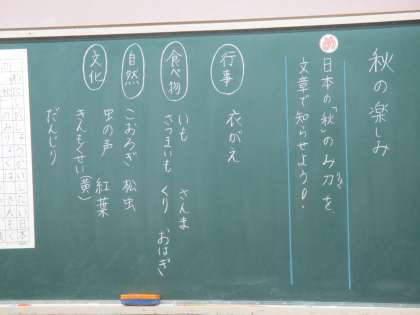 秋の楽しみ
め
日本の「秋」のみ力を、
りょく
文章で知らせよう!
行事
衣がえ
食べ物
いも さんま
さつまいも くり おはぎ
自然
こおろぎ 松虫
虫の声 紅葉
文化
きんもくせい(黄)
だんじり